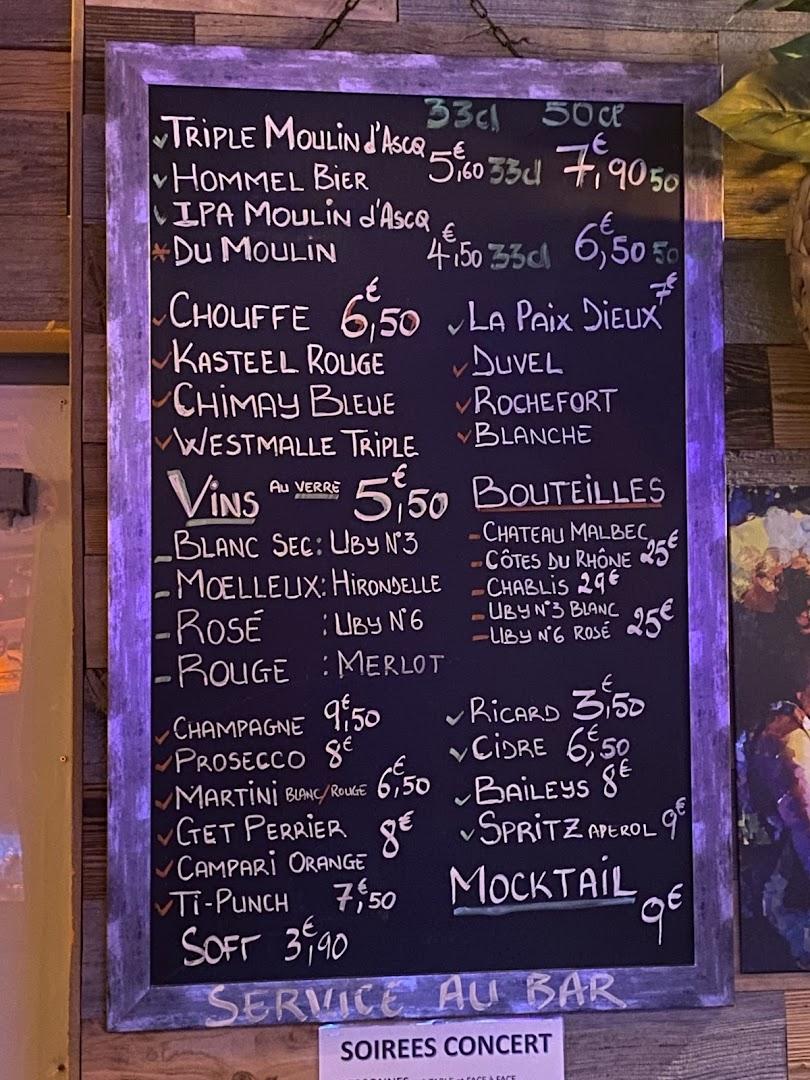 33cl 50cl
TRIPLE MOULIN d'ASCQ
HOMMEL BIER 5,€60 33cl 7,€90 50
IPA MOULIN d'ASCQ
DU MOULIN 4,€50 33cl 6,€50 50
CHOUFFE 6,€50
KASTEEL ROUGE
CHIMAY BLEUE
WESTMALLE TRIPLE
LA PAIX DIEUX 7€
DUVEL
ROCHEFORT
BLANCHE
VINS AU VERRE 5,€50
BLANC SEC: UBY N°3
MOELLEUX: HIRONDELLE
ROSÉ : UBY N°6
ROUGE : MERLOT
BOUTEILLES
- CHATEAU MALBEC
- CÔTES DU RHÔNE 25€
- CHABLIS 29€
- UBY N°3 BLANC
- UBY N°6 ROSÉ 25€
CHAMPAGNE 9,€50
PROSECCO 8€
MARTINI BLANC/ROUGE 6,€50
GET PERRIER 8€
CAMPARI ORANGE
TI-PUNCH 7,€50
SOFT 3,€90
RICARD 3,€50
CIDRE 6,€50
BAILEYS 8€
SPRITZ APEROL 9€
MOCKTAIL 9€
SERVICE AU BAR
SOIREES CONCERT